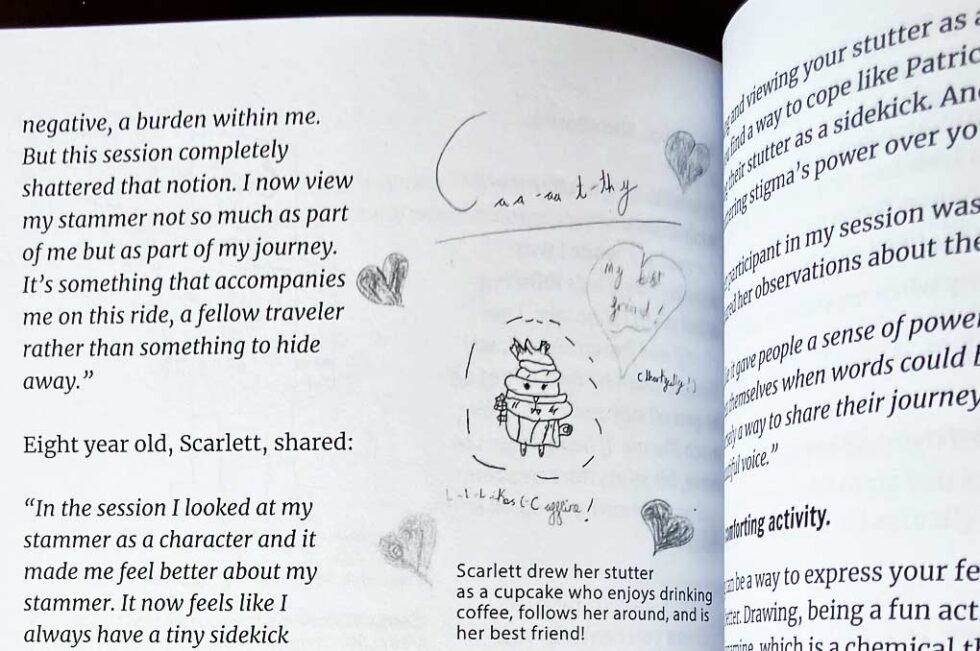 negative, a burden within me.
But this session completely
shattered that notion. I now view
my stammer not so much as part
of me but as part of my journey.
It's something that accompanies
me on this ride, a fellow traveler
rather than something to hide
away."
Eight year old, Scarlett, shared:
"In the session I looked at my
stammer as a character and it
made me feel better about my
stammer. It now feels like I
always have a tiny sidekick
C aa-aa t-thy
My best
friend!
L-l-l-ikes C-C affeine!
Scarlett drew her stutter
as a cupcake who enjoys drinking
coffee, follows her around, and is
her best friend!
and viewing your stutter as
find a way to cope like
their stutter as a sidekick.
stigma's power over
participant in my session was
her observations about
it gave people a sense of
themselves when words could
a way to share their journey
voice."
activity.
be a way to express your
Drawing, being a fun
which is a chemical